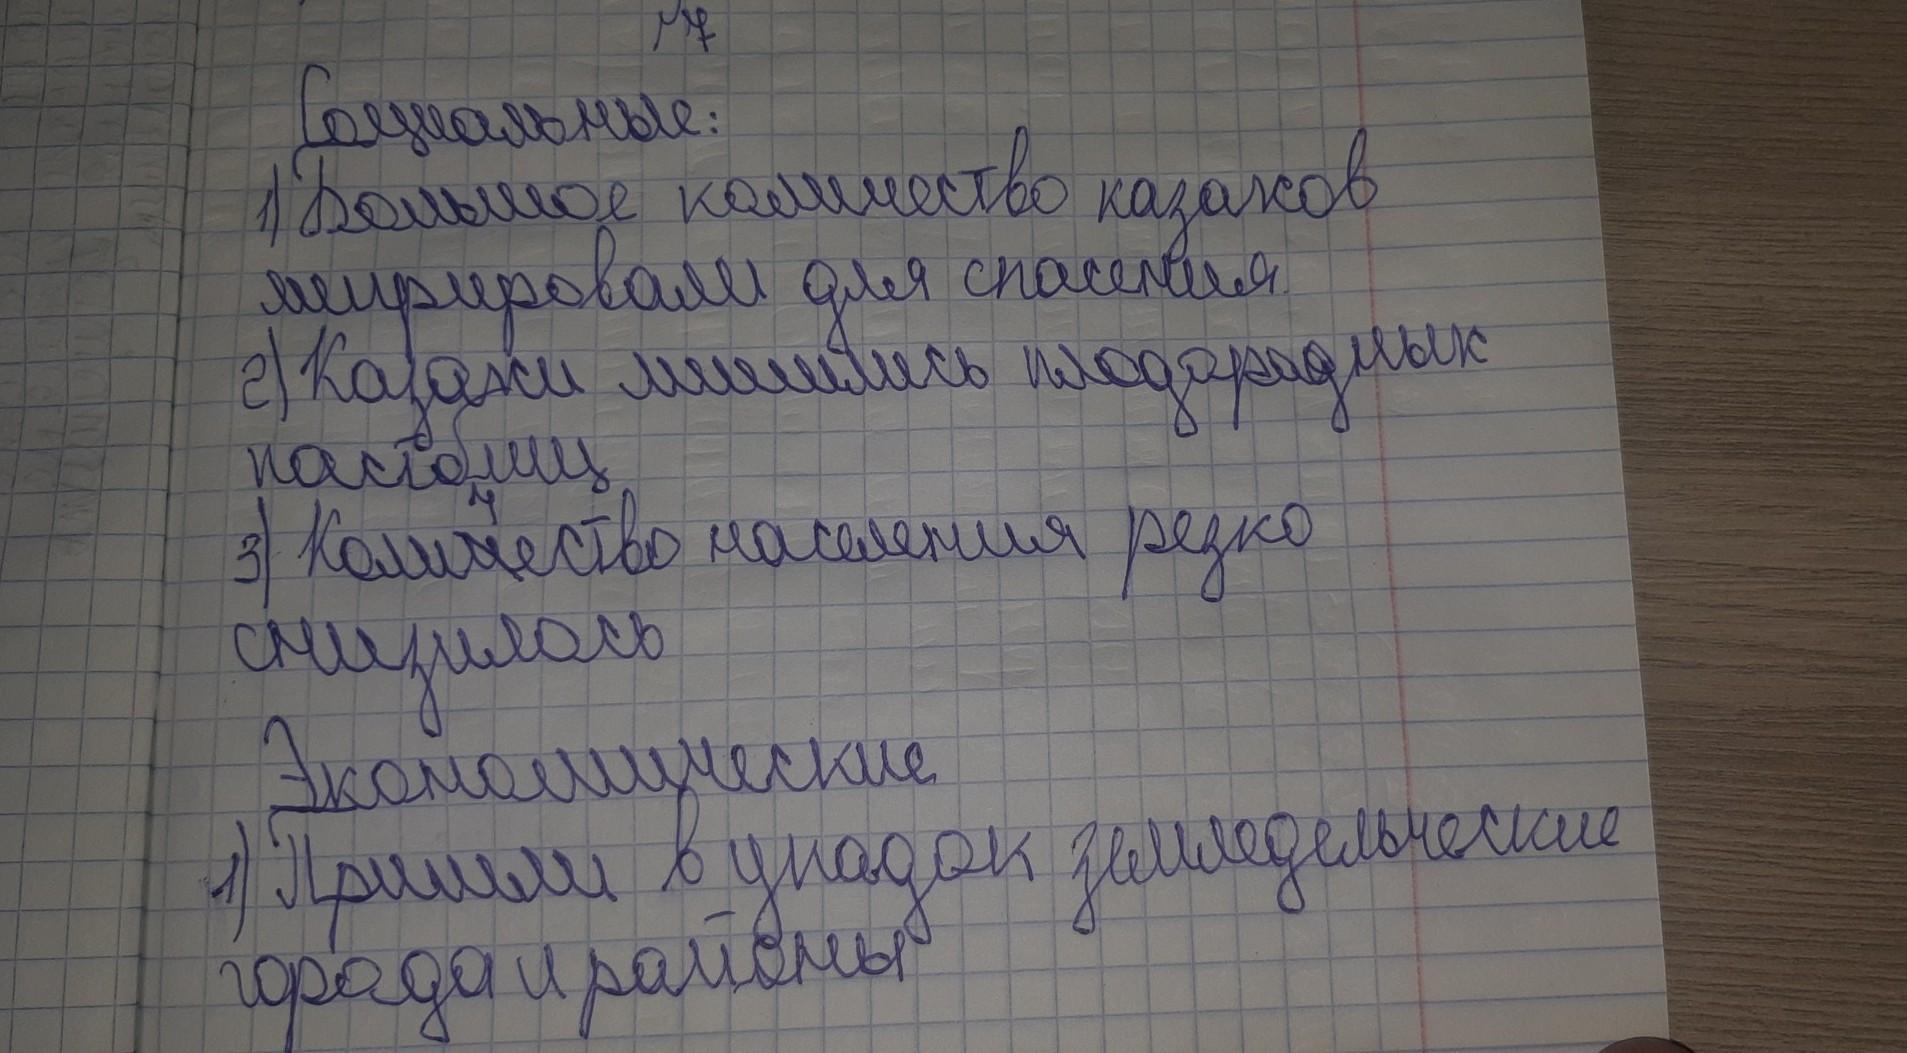 17
Социальные:
1) Большое количество казахов
мигрировали для спасения
2) Казахи лишились плодородных
пастбищ
3) Количество населения резко
снизилось
Экономические
1) Пришли в упадок земледельческие
города и районы